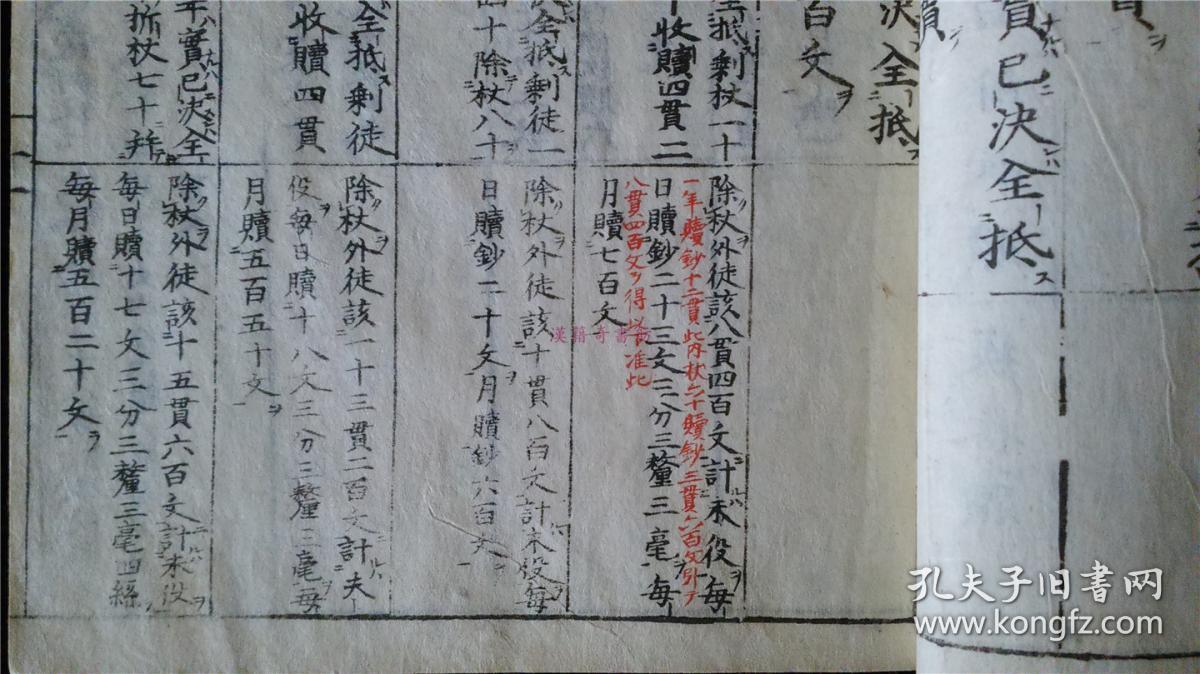 貫
實已決全抵
贖
決全抵
百文
全抵剩杖一十
收贖四貫二
除杖外徒該八貫四百文計未役每
一年贖鈔十二貫此內杖六十贖鈔三貫六百文引テ
日贖鈔二十三文三分三釐三毫每
八貫四百文ヲ得以下准此
月贖七百文
決全抵剩徒一
四十除杖八十
除杖外徒該十貫八百文計未役每
日贖鈔二十文月贖鈔六百文
全抵剩徒
收贖四貫
除杖外徒該一十三貫二百文計夫
役每日贖十八文三分三釐三毫每
月贖五百五十文
年實已決全
折杖七十幷
除杖外徒該十五貫六百文計未役
每日贖十七文三分三釐三毫四絲
每月贖五百二十文
漢籍奇書
孔夫子旧书网
www.kongfz.com